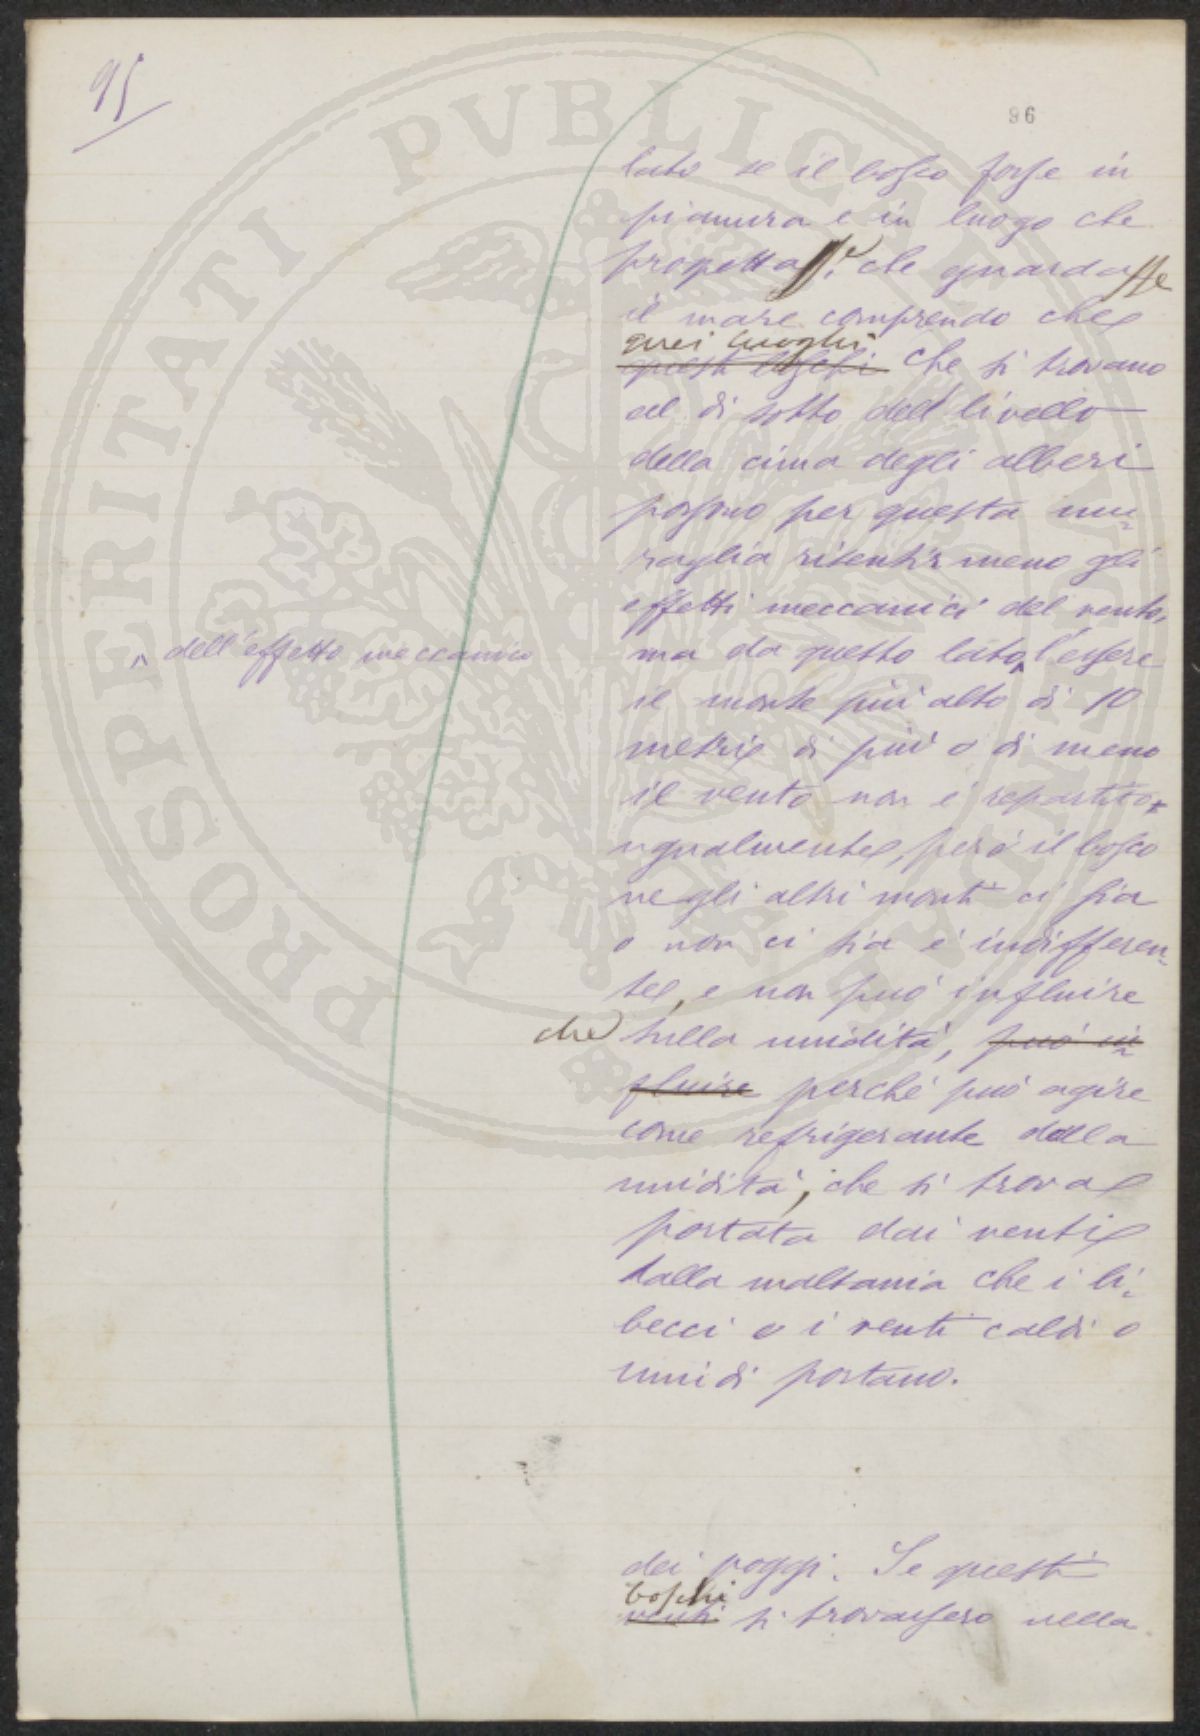 95
96
lato se il bosco fosse in
pianura e in luogo che
progettasse, che guardasse
il mare comprendo che
quei luoghi
questi boschi che si trovano
al di sotto del livello
della cima degli alberi
possono per questa mu-
raglia risentir meno gli
effetti meccanici del vento,
^ dell'effetto meccanico
ma da questo lato ^ l'essere
il monte più alto di 10
metri di più o di meno
il vento non è repartito
ugualmente, però il bosco
negli altri monti ci sia
o non ci sia è indifferen-
te, e non può influire
che sulla umidità, può in-
fluire perché può agire
come refrigerante della
umidità, che si trova
portata dai venti
dalla maltania che i li-
becci o i venti caldi o
umidi portano.
dei poggi. Se questi
boschi
venti si trovassero nella
PROSPERITATI PVBLICAE